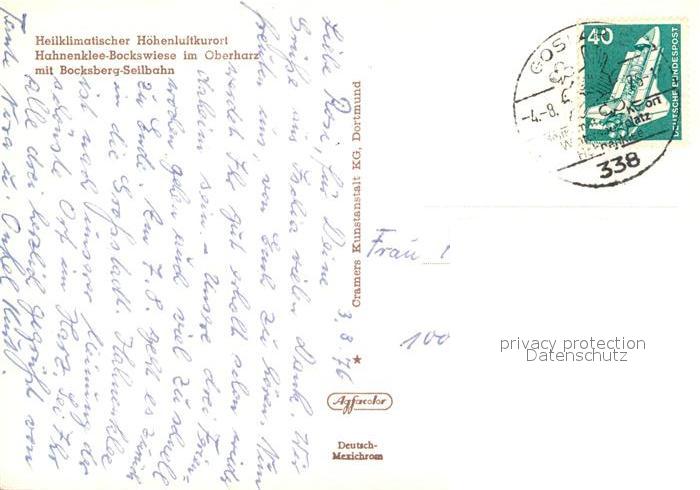 Heilklimatischer Höhenluftkurort
Hahnenklee-Bockswiese im Oberharz
mit Bocksberg-Seilbahn
3.8.76
Liebe Rose, für Deine
Grüße aus Ischia vielen Dank. Wir
freuten uns, von Euch zu hören. Nun
werdet Ihr gut erholt schon wieder
daheim sein. - Unsere drei
Wochen gehen auch viel zu schnell
zu Ende. Am 7.8. geht es zurück
in die Großstadt. Hahnenklee
ist nach unserer Meinung der
schönste Ort im Harz. Seid Ihr
alle drei herzlich gegrüßt von
Tante u. Onkel Kurt.
Cramers Kunstanstalt KG, Dortmund
Agfacolor
Deutsch-
Mexichrom
Frau
100
40
DEUTSCHE BUNDESPOST
GOSLAR
-4.-8.
338
privacy protection
Datenschutz